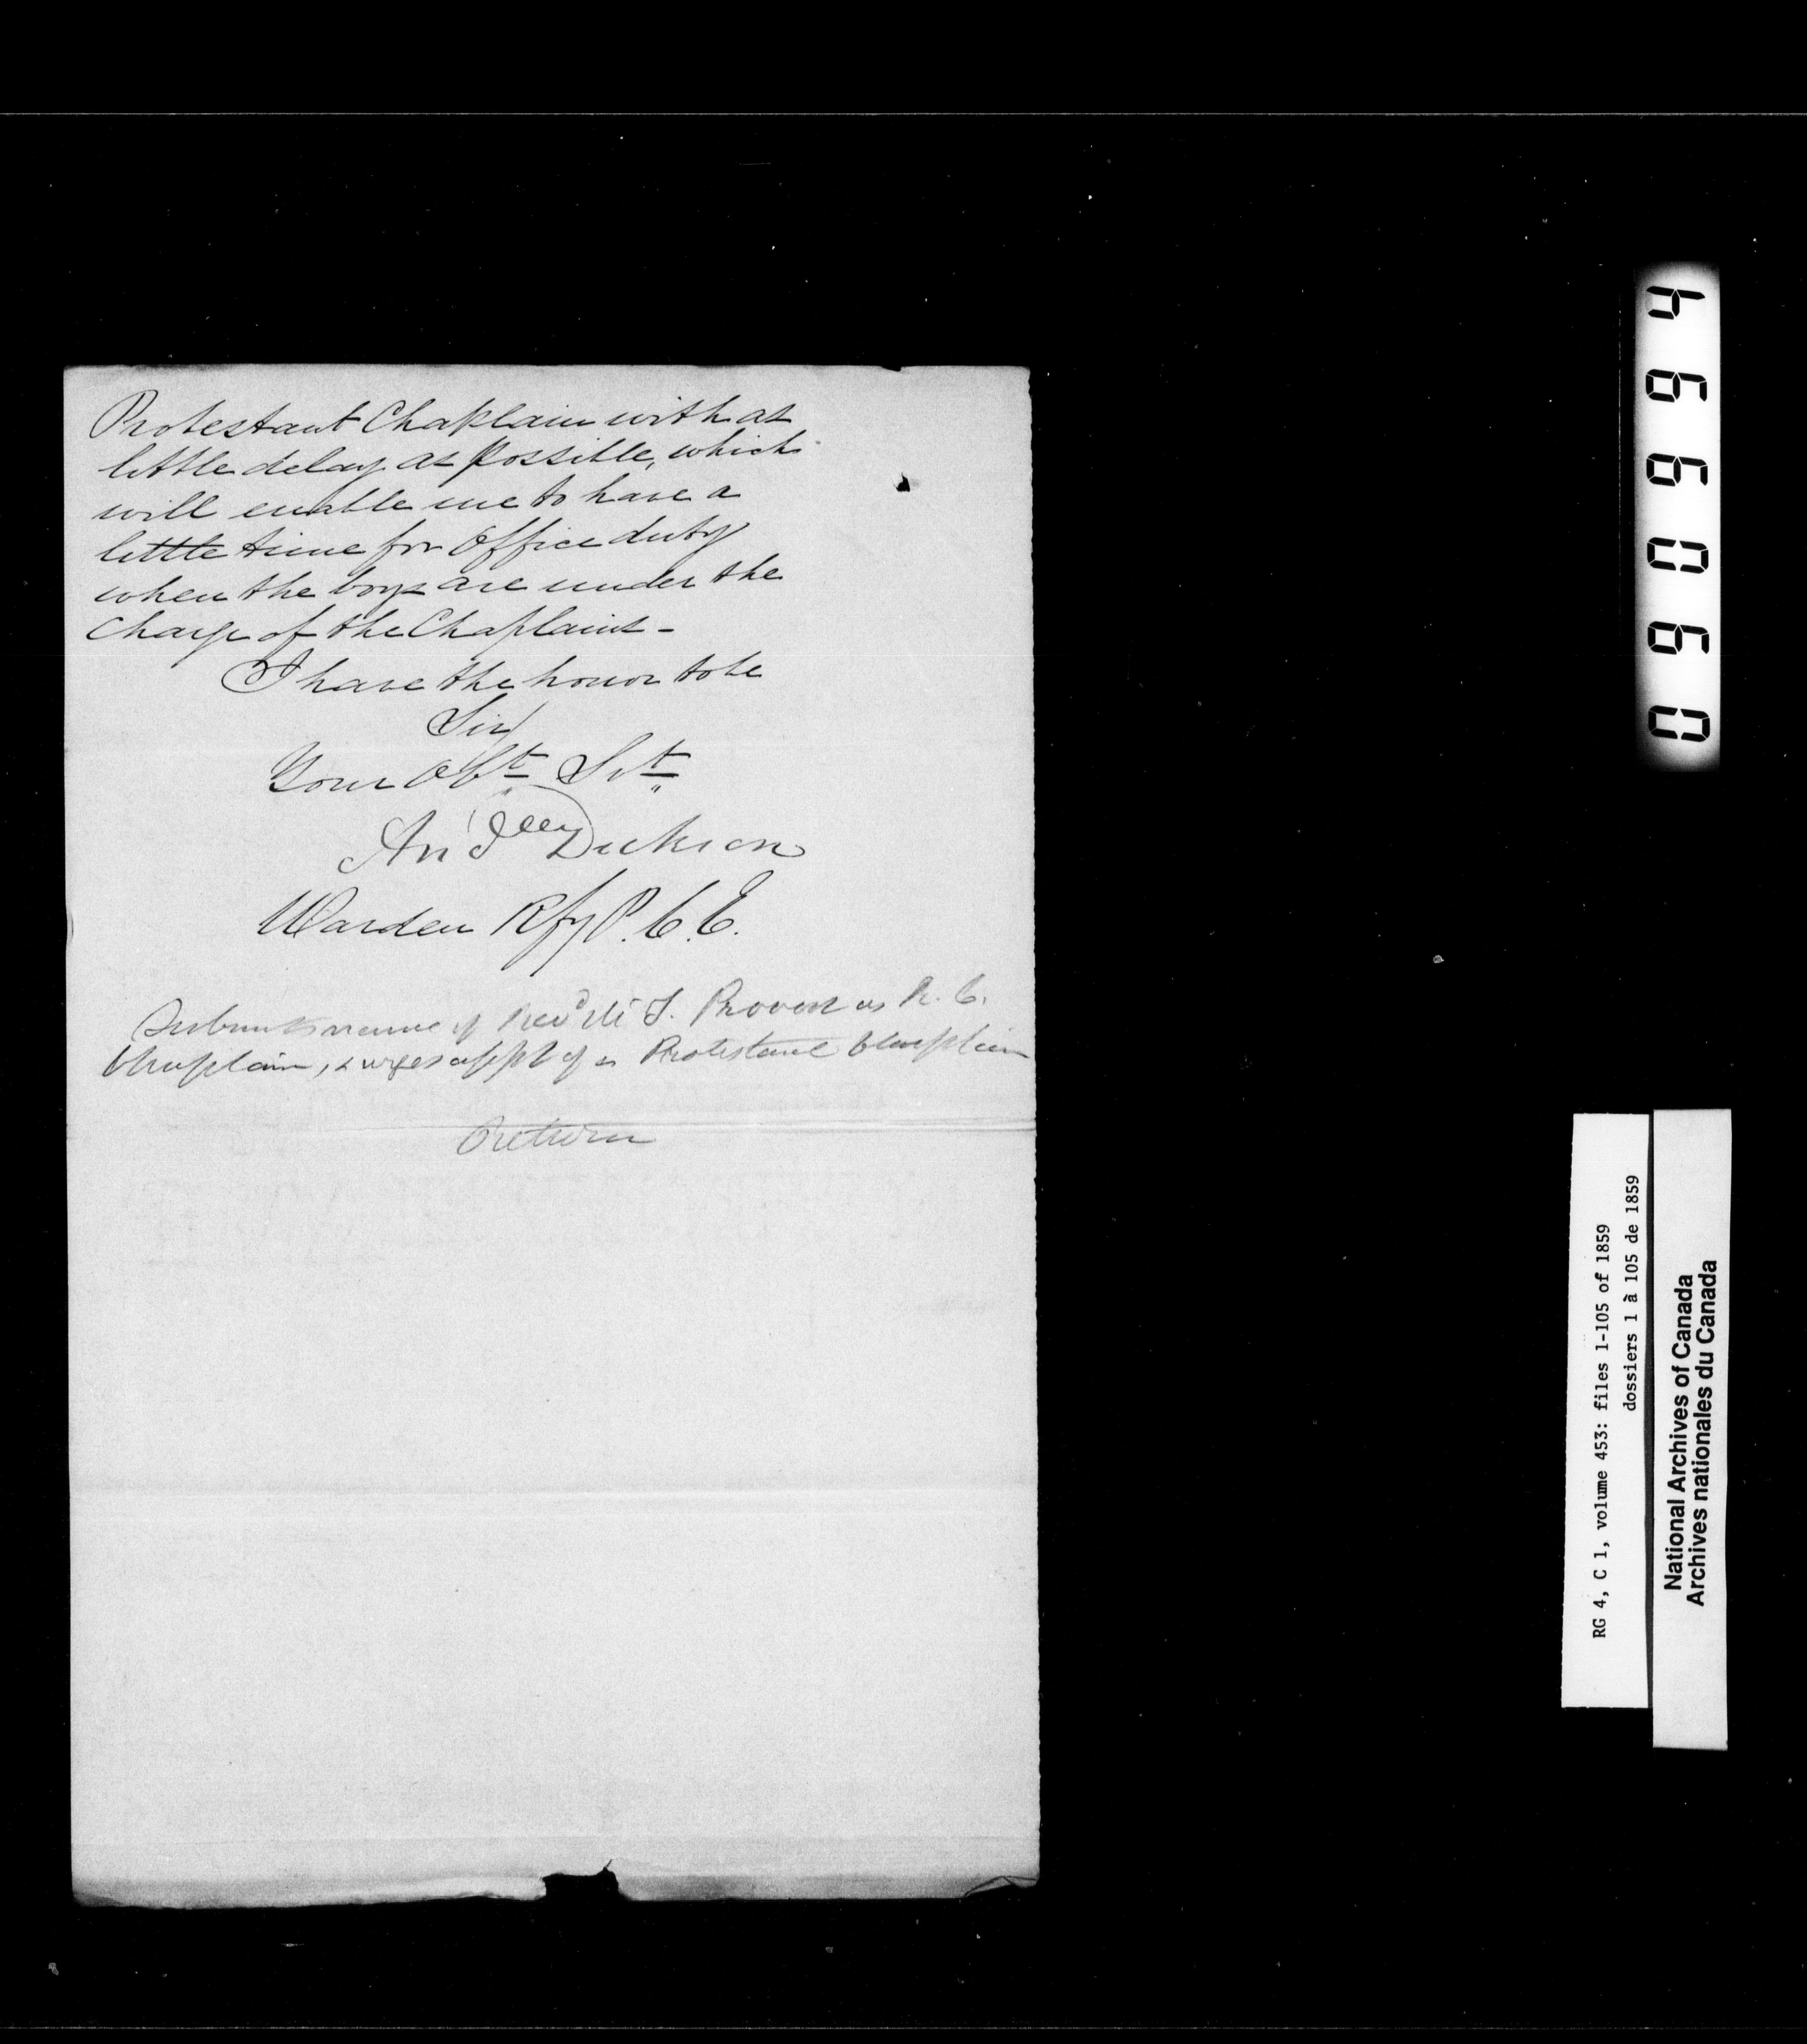 Protestant Chaplain with as
little delay as possible, which
will enable me to have a
little time for Office duty
when the boys are under the
charge of the Chaplains -
I have the honor to be
Sir
Your Obt Svt
And Dickson
Warden Rfy P. C. E.
Submits name of Revd Mr J. Provost as R. C.
Chaplain, & urges appt of a Protestant Chaplain
Return
0 9 0 9 9 4
RG 4, C 1, volume 453: files 1-105 of 1859
dossiers 1 à 105 de 1859
National Archives of Canada
Archives nationales du Canada